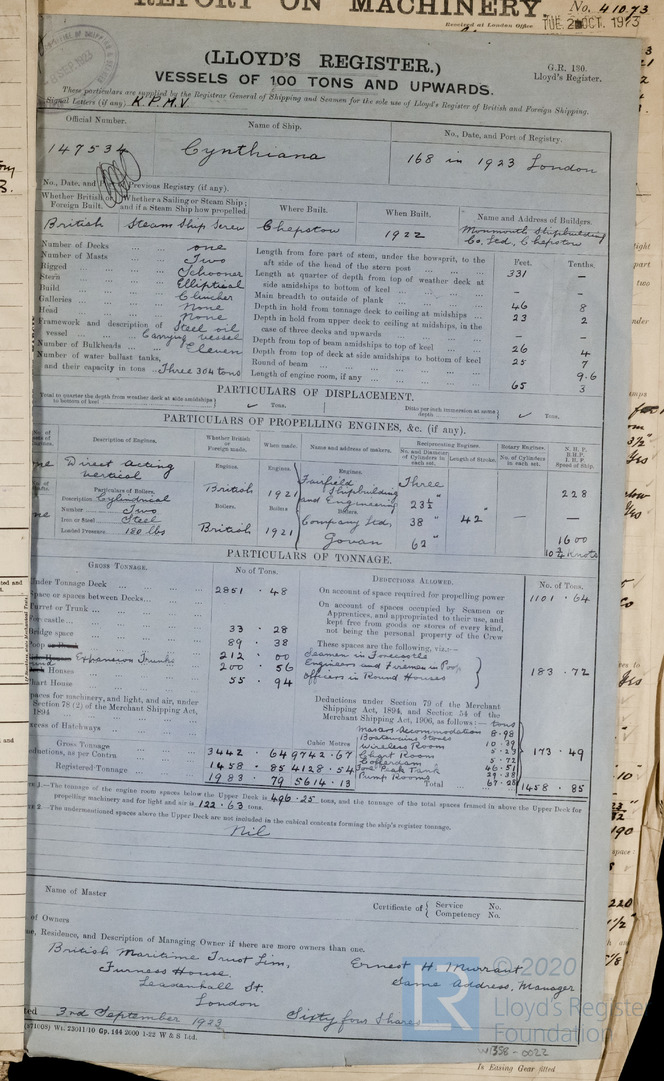 REPORT ON MACHINERY.
No. 41073
Received at London Office
TUE. 2 OCT. 1923
(LLOYD'S REGISTER.)
G.R. 130.
Lloyd's Register.
VESSELS OF 100 TONS AND UPWARDS.
These particulars are supplied by the Registrar General of Shipping and Seamen for the sole use of Lloyd's Register of British and Foreign Shipping.
Signal Letters (if any) K.P.M.V
Official Number. Name of Ship. No., Date, and Port of Registry.
147534 Cynthiana 168 in 1923 London
No., Date, and Previous Registry (if any).
Whether British or Foreign Built. Whether a Sailing or Steam Ship; and if a Steam Ship how propelled. Where Built. When Built. Name and Address of Builders.
British Steam Ship Screw Chepstow 1922 Monmouth Shipbuilding Co. Ltd., Chepstow
Feet. Tenths.
Number of Decks one
Number of Masts Two
Rigged Schooner
Stern Elliptical
Build Clincher
Galleries None
Head None
Framework and description of vessel Steel oil Carrying vessel
Number of Bulkheads Eleven
Number of water ballast tanks, and their capacity in tons Three 304 tons
Length from fore part of stem, under the bowsprit, to the aft side of the head of the stern post 331 –
Length at quarter of depth from top of weather deck at side amidships to bottom of keel – –
Main breadth to outside of plank 46 8
Depth in hold from tonnage deck to ceiling at midships 23 2
Depth in hold from upper deck to ceiling at midships, in the case of three decks and upwards – –
Depth from top of beam amidships to top of keel 26 4
Depth from top of deck at side amidships to bottom of keel 25 7
Round of beam 9.6
Length of engine room, if any 65 3
PARTICULARS OF DISPLACEMENT.
Total to quarter the depth from weather deck at side amidships to bottom of keel ✓ Tons. Ditto per inch immersion at same depth ✓ Tons.
PARTICULARS OF PROPELLING ENGINES, &c. (if any).
Description of Engines. Whether British or Foreign made. When made. Name and address of makers. Reciprocating Engines. Rotary Engines. N.H.P. B.H.P. I.H.P. Speed of Ship.
No. and Diameter of Cylinders in each set. Length of Stroke. No. of Cylinders in each set.
Direct acting vertical
Engines. British Engines. 1921
Engines. Fairfield Shipbuilding and Engineering
Boilers. Company Ltd, Govan
Three
23½ "
38 " 42"
62 "
228
–
1600
10¾ Knots
Particulars of Boilers.
Description Cylindrical
Number Two
Iron or Steel Steel
Loaded Pressure 180 lbs
Boilers. British Boilers 1921
PARTICULARS OF TONNAGE.
GROSS TONNAGE. No. of Tons. DEDUCTIONS ALLOWED. No. of Tons.
Under Tonnage Deck 2851 . 48
Space or spaces between Decks
Turret or Trunk
Forecastle
Bridge space 33 . 28
Poop 89 . 38
Expansion Trunks 212 . 00
Houses 200 . 56
Chart House 55 . 94
Spaces for machinery, and light, and air, under Section 78 (2) of the Merchant Shipping Act, 1894
Excess of Hatchways
Cubic Metres
Gross Tonnage 3442 . 64 9742.67
Deductions, as per Contra 1458 . 85 4128.54
Registered Tonnage 1983 . 79 5614.13
On account of space required for propelling power 1101 . 64
On account of spaces occupied by Seamen or Apprentices, and appropriated to their use, and kept free from goods or stores of every kind, not being the personal property of the Crew
These spaces are the following, viz.:—
Seamen in Forecastle
Engineers and Firemen in Poop
Officers in Round Houses
183 . 72
Deductions under Section 79 of the Merchant Shipping Act, 1894, and Section 54 of the Merchant Shipping Act, 1906, as follows:— tons
Masters Accommodation 8.98
Boatswains Stores 10.39
Wireless Room 5.23
Chart Room 5.72
Cofferdam 46.51
Fore Peak Tank 29.38
Pump Rooms 67.28
173 . 49
Total 1458 . 85
1.—The tonnage of the engine room spaces below the Upper Deck is 496.25 tons, and the tonnage of the total spaces framed in above the Upper Deck for propelling machinery and for light and air is 122.63 tons.
2.—The undermentioned spaces above the Upper Deck are not included in the cubical contents forming the ship's register tonnage.
Nil
Name of Master
Certificate of { Service No. Competency No.
of Owners
Residence, and Description of Managing Owner if there are more owners than one.
British Maritime Trust Lim,
Furness House
Leadenhall St.
London
Ernest H. Murrant
Same Address, Manager
3rd September 1923 Sixty four Shares
(71008) Wt. 23011/10 Gp. 144 2000 1-22 W & S Ltd.
© 2020
Lloyd's Register
Foundation
LR
W1358-0022
Is Easing Gear fitted